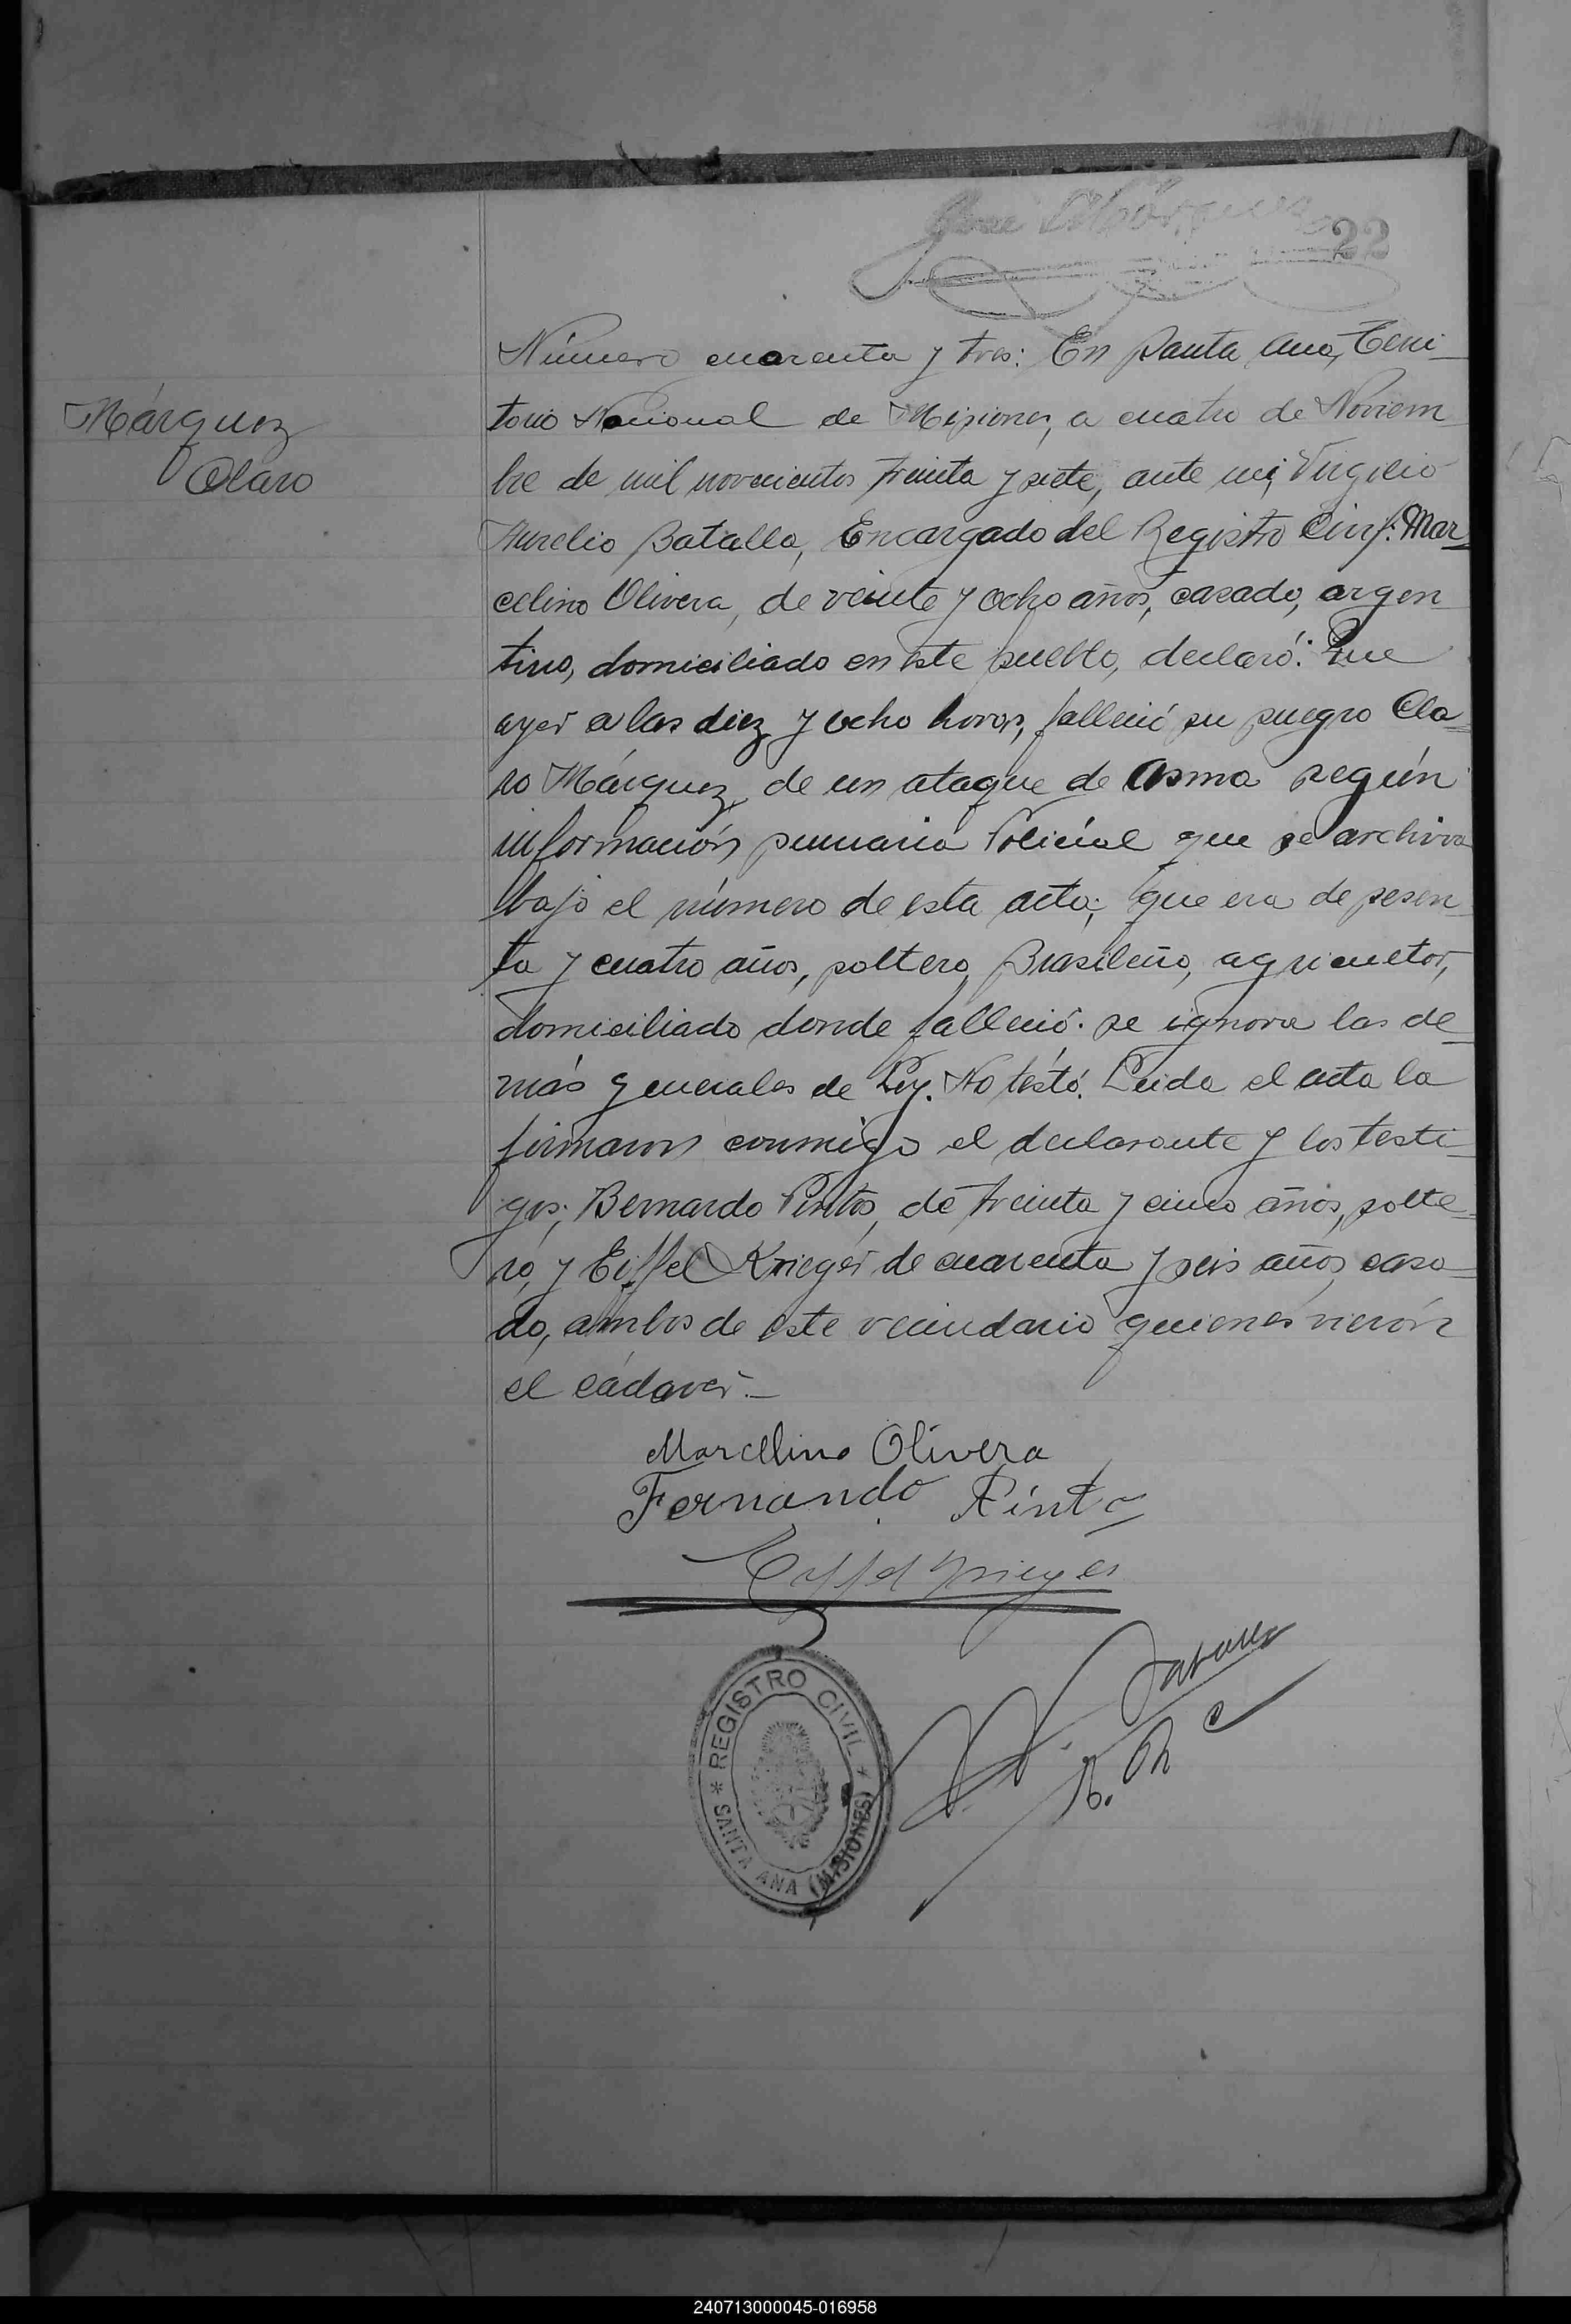 22
Número cuarenta y tres: En Santa Ana, Terri-
torio Nacional de Misiones, a cuatro de Noviem-
bre de mil novecientos treinta y siete, ante mi, Virgilio
Aurelio Batalla, Encargado del Registro Civil: Mar-
celino Olivera, de veinte y ocho años, casado, argen-
tino, domiciliado en este pueblo, declaró: Que
ayer a las diez y ocho horas, falleció su suegro Cla-
ro Márquez, de un ataque de asma según
información sumaria Policial que se archiva
bajo el número de esta acta; que era de sesen-
ta y cuatro años, soltero, Brasileño, agricultor,
domiciliado donde falleció. se ignora las de-
más generales de Ley. No testó. Leida el acta la
firmaron conmigo el declarante y los testi-
gos; Bernardo Pintos, de treinta y cinco años, solte-
ro, y Eiffel Krieger de cuarenta y seis años, casa-
do, ambos de este vecindario quienes vierón
el cádaver.-
Márquez
Claro
Marcelino Olivera
Fernando Pinto
Eiffel Krieger
REGISTRO CIVIL * SANTA ANA (MISIONES) *
240713000045-016958